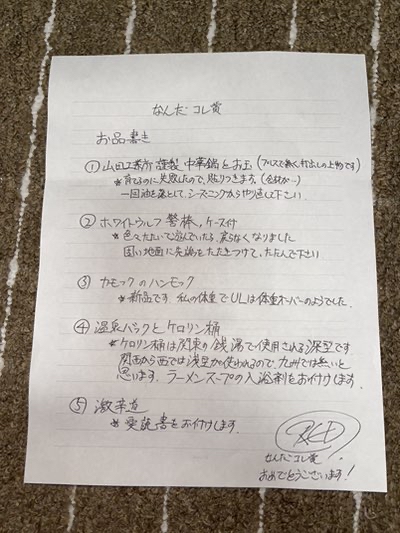 なんだ コレ賞
お品書き
① 山田工業所 謹製 中華鍋とお玉 (プレスで無く打出しの上物です)
＊育てるのに失敗したので、貼りつきます。
一回油を落として、シーズニングからやり直して下さい
② ホワイトウルフ 警棒、ケース付
＊色々たたいて遊んでいたら、戻らなくなりました
固い地面に先端をたたきつけて、たたんで下さい
③ カモックのハンモック
＊新品です。私の体重でULは体重オーバーのようでした。
④ 温泉バックとケロリン桶
＊ケロリン桶は関東の銭湯で使用される深型です
関西から西では浅型が使われるので、九州では無いと
思います。ラーメンスープの入浴剤をお付けします。
⑤ 激辛道
＊愛読書をお付けします。
なんだ コレ賞
おめでとうございます!